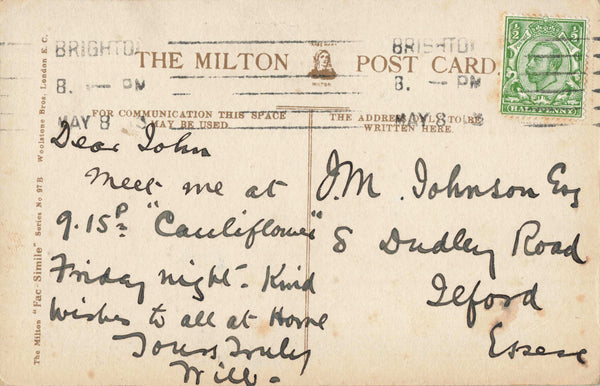 BRIGHTON
8. - PM
MAY 8
THE MILTON POST CARD.
MILTON
BRIGHTON
8. - PM
MAY 8
HALFPENNY
FOR COMMUNICATION THIS SPACE
MAY BE USED
THE ADDRESS ONLY TO BE
WRITTEN HERE
The Milton "Fac-Simile" Series No. 97 B Woolstone Bros. London E. C.
Dear John
Meet me at
9.15 P "Cauliflower"
Friday night - Kind
Wishes to all at Home
Yours truly
Will.
J.M. Johnson Esq
8 Dudley Road
Ilford
Essex